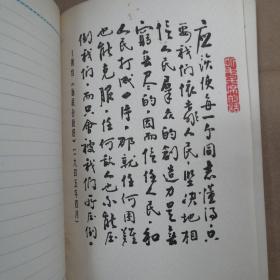 应该使每一个同志懂得,只
要我们依靠人民,坚决地相
信人民群众的创造力是无
穷无尽的,因而信任人民,和
人民打成一片,那就任何困难
也能克服,任何敌人也不能压
倒我们,而只会被我们所压倒。
《论联合政府》(一九四五年四月)